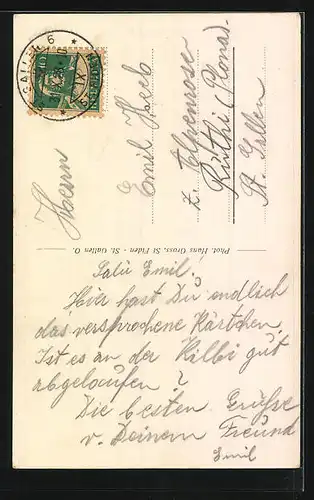 Herrn
Emil Heeb
z. Alpenrose
Rüthi
St. Gallen
Phot. Hans Gross, St. Fiden - St. Gallen O.
Salü Emil.
Hier hast Du endlich
das versprochene Kärtchen.
Ist es an der Kilbi gut
abgelaufen?
Die besten Grüsse
v. Deinem Freund
Emil